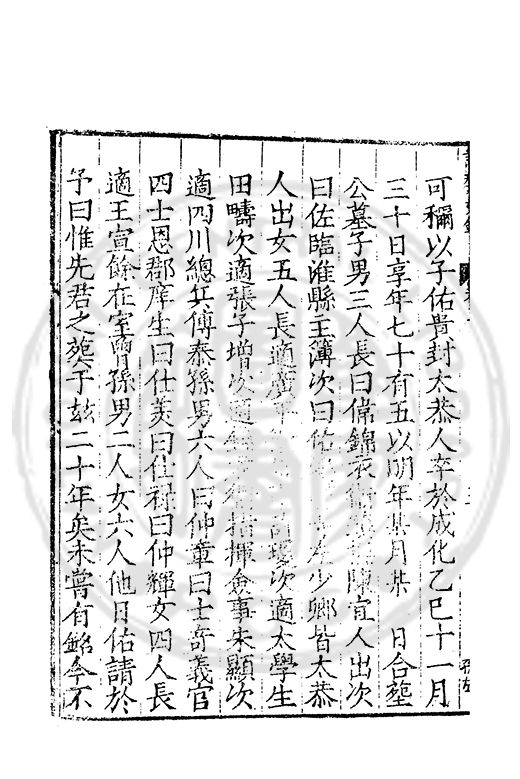 可稱以子佑貴封太恭人卒於成化乙巳十一月
三十日享年七十有五以明年某月某 日合塟
公墓子男三人長曰偉錦衣 宜人出次
曰佐臨淮縣主簿次曰佑 少卿皆太恭
人出女五人長適 次適太學生
田疇次適張子增次適 指揮僉事朱顯次
適四川總兵傅泰孫男六人曰仲章曰士奇義官
四士恩郡庠生曰仕美曰仕祿曰仲輝女四人長
適王宣餘在室曾孫男二人女六人他日佑請於
予曰惟先君之塟于玆二十年矣未嘗有銘今不